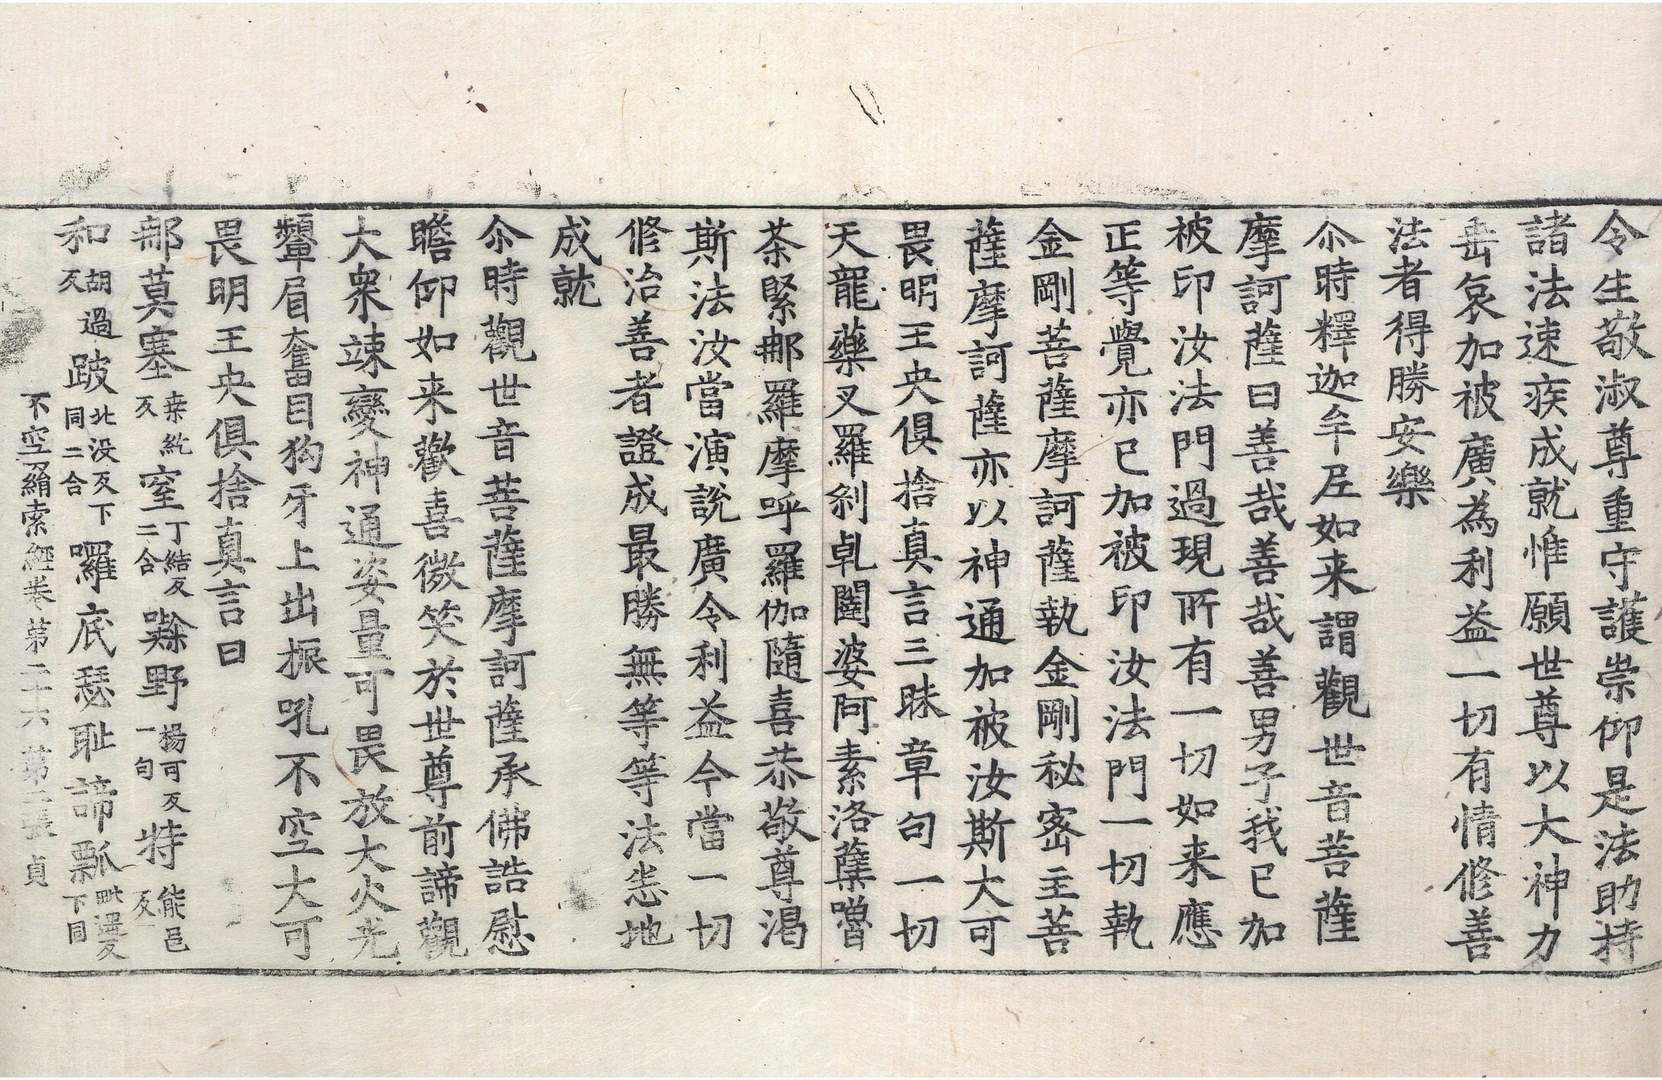 令生敬淑尊重守護崇仰是法助持
諸法速疾成就惟願世尊以大神力
垂哀加被廣為利益一切有情修善
法者得勝安樂
尒時釋迦牟尼如来謂觀世音菩薩
摩訶薩曰善哉善哉善男子我已加
被印汝法門過現所有一切如来應
正等覺亦已加被印汝法門一切執
金剛菩薩摩訶薩執金剛秘密主菩
薩摩訶薩亦以神通加被汝斯大可
畏明王央俱捨真言三昧章句一切
天龍藥叉羅剎乹闥婆阿素洛蘖嚕
茶緊那羅摩呼羅伽隨喜恭敬尊渴
斯法汝當演說廣令利益今當一切
修治善者證成最勝無等等法恙地
成就
尒時觀世音菩薩摩訶薩承佛誥慰
瞻仰如来歡喜微笑於世尊前諦觀
大衆竦變神通姿量可畏放大火光
顰眉奮目狗牙上出振吼不空大可
畏明王央俱捨真言曰
那莫塞桒紇反窒丁結反二合㗚野楊可反一句特能邑反
和胡過反跛北没反下同二合囉底瑟耻諦瓢毗遥反下同
不空羂索經卷第二十六第二張 貞